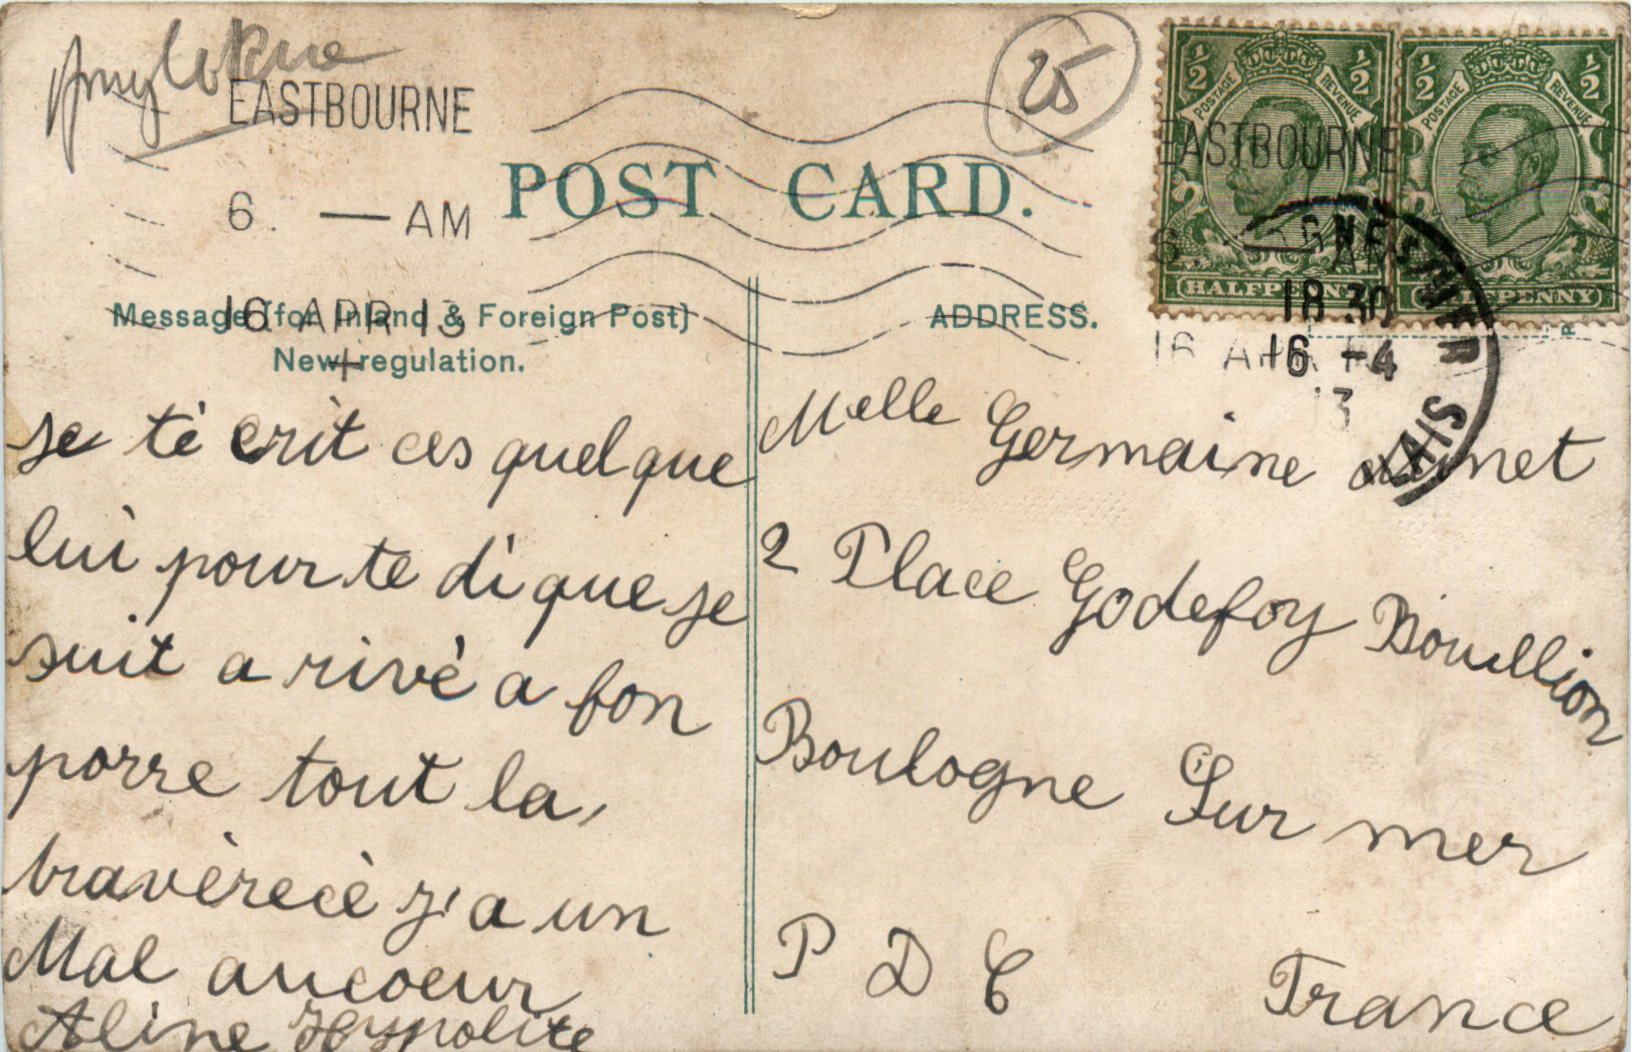 EASTBOURNE
6. — AM
16 APR 13
+
25
POST CARD.
Message (for Inland & Foreign Post)
New regulation.
ADDRESS.
½ POSTAGE REVENUE ½
HALFPENNY
½ POSTAGE REVENUE ½
HALFPENNY
EASTBOURNE
6. AM
16 APR 13
18 30
16 -4
13
Je té crit ces quelque
lui pour te di que je
suit a rivé a bon
porre tout la,
bravèrecè j'a un
Mal aucoeur
Aline Hyppolite
Melle Germaine
2 Place Godefoy Bouillion
Boulogne Sur mer
P D C France